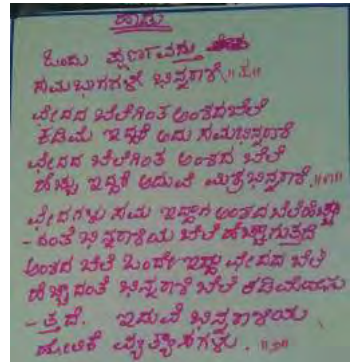 ಹಾಡು
ಒಂದು ಪೂರ್ಣವನ್ನು
ಸಮಭಾಗಗಳೇ ಭಿನ್ನರಾಶಿ ॥ಪ॥
ಛೇದದ ಬೆಲೆಗಿಂತ ಅಂಶದಬೆಲೆ
ಕಡಿಮೆ ಇದ್ದರೆ ಅದು ಸಮಭಿನ್ನರಾಶಿ
ಛೇದದ ಬೆಲೆಗಿಂತ ಅಂಶದ ಬೆಲೆ
ಹೆಚ್ಚು ಇದ್ದರೆ ಅದುವೆ ಮಿಶ್ರಭಿನ್ನರಾಶಿ ॥೧॥
ಛೇದಗಳು ಸಮ ಇದ್ದಾಗ ಅಂಶದಬೆಲೆಹೆಚ್ಚಾ
-ದಂತೆ ಭಿನ್ನರಾಶಿಯ ಬೆಲೆ ಹೆಚ್ಚಾಗುತ್ತದೆ
ಅಂಶದ ಬೆಲೆ ಒಂದೇ ಇದ್ದು ಛೇದದ ಬೆಲೆ
ಹೆಚ್ಚಾದಂತೆ ಭಿನ್ನರಾಶಿ ಬೆಲೆ ಕಡಿಮೆಯಾಗು
-ತ್ತದೆ. ಇದುವೆ ಭಿನ್ನರಾಶಿಯ
ಹೋಲಿಕೆ ವ್ಯತ್ಯಾಸಗಳು. ॥೨॥